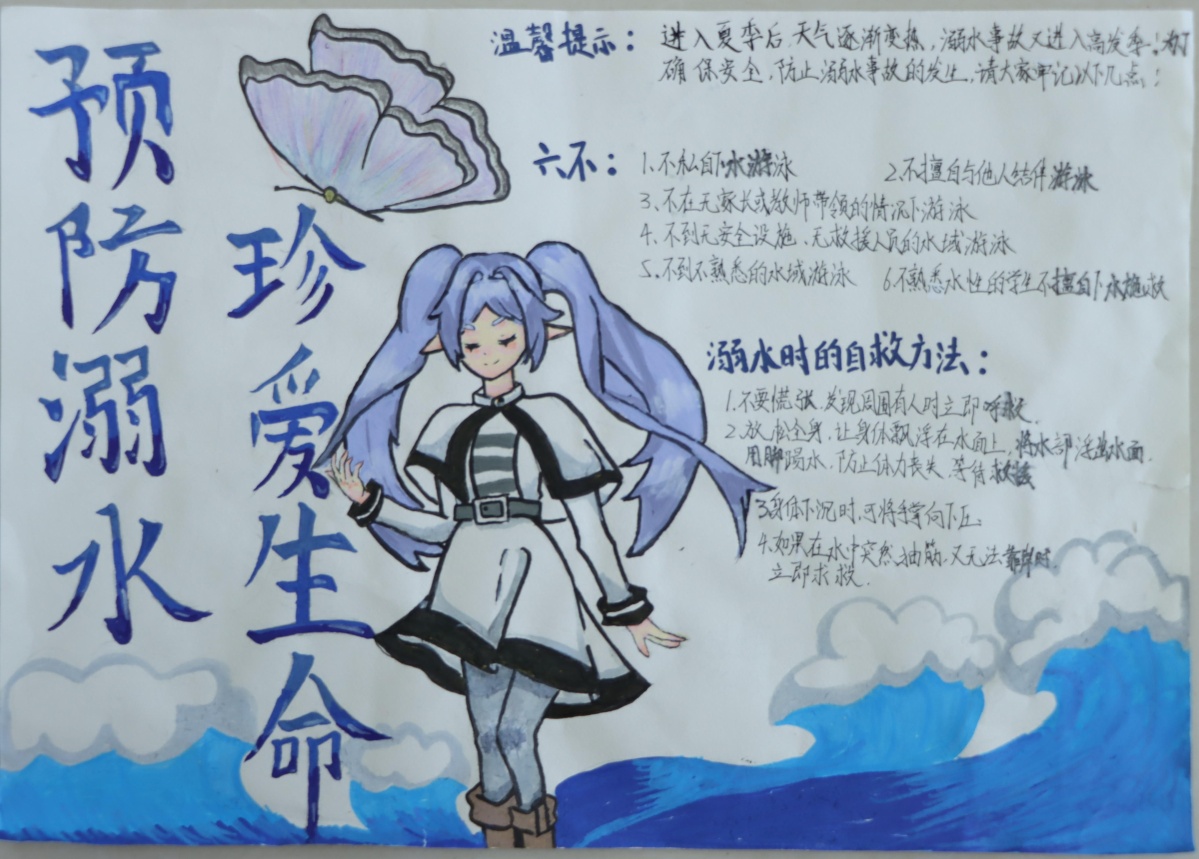 预防溺水
珍爱生命
温馨提示：进入夏季后，天气逐渐变热，溺水事故又进入高发季！为了
确保安全，防止溺水事故的发生，请大家牢记以下几点：
六不：1.不私自下水游泳 2.不擅自与他人结伴游泳
3.不在无家长或教师带领的情况下游泳
4.不到无安全设施、无救援人员的水域游泳
5.不到不熟悉的水域游泳 6.不熟悉水性的学生不擅自下水施救
溺水时的自救方法：
1.不要慌张，发现周围有人时立即呼救
2.放松全身，让身体飘浮在水面上，将水部浮出水面，
用脚踢水，防止体力丧失，等待救援
3.身体下沉时，可将手掌向下压
4.如果在水中突然抽筋，又无法靠岸时，
立即求救.